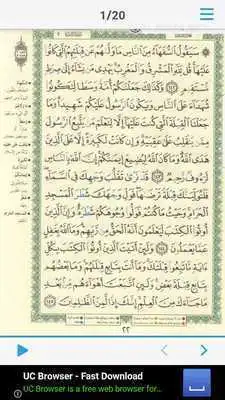 1/20
سَيَقُولُ السُّفَهَاءُ مِنَ النَّاسِ مَا وَلَّىٰهُمْ عَن قِبْلَتِهِمُ الَّتِي كَانُوا
عَلَيْهَا قُل لِّلَّهِ الْمَشْرِقُ وَالْمَغْرِبُ يَهْدِي مَن يَشَاءُ إِلَىٰ صِرَٰطٍ
مُّسْتَقِيمٍ ١٤٢ وَكَذَٰلِكَ جَعَلْنَٰكُمْ أُمَّةً وَسَطًا لِّتَكُونُوا
شُهَدَاءَ عَلَى النَّاسِ وَيَكُونَ الرَّسُولُ عَلَيْكُمْ شَهِيدًا وَمَا
جَعَلْنَا الْقِبْلَةَ الَّتِي كُنتَ عَلَيْهَا إِلَّا لِنَعْلَمَ مَن يَتَّبِعُ الرَّسُولَ
مِمَّن يَنقَلِبُ عَلَىٰ عَقِبَيْهِ وَإِن كَانَتْ لَكَبِيرَةً إِلَّا عَلَى الَّذِينَ
هَدَى اللَّهُ وَمَا كَانَ اللَّهُ لِيُضِيعَ إِيمَٰنَكُمْ إِنَّ اللَّهَ بِالنَّاسِ
لَرَءُوفٌ رَّحِيمٌ ١٤٣ قَدْ نَرَىٰ تَقَلُّبَ وَجْهِكَ فِي السَّمَاءِ
فَلَنُوَلِّيَنَّكَ قِبْلَةً تَرْضَىٰهَا فَوَلِّ وَجْهَكَ شَطْرَ الْمَسْجِدِ
الْحَرَامِ وَحَيْثُ مَا كُنتُمْ فَوَلُّوا وُجُوهَكُمْ شَطْرَهُ وَإِنَّ الَّذِينَ
أُوتُوا الْكِتَٰبَ لَيَعْلَمُونَ أَنَّهُ الْحَقُّ مِن رَّبِّهِمْ وَمَا اللَّهُ بِغَٰفِلٍ
عَمَّا يَعْمَلُونَ ١٤٤ وَلَئِنْ أَتَيْتَ الَّذِينَ أُوتُوا الْكِتَٰبَ بِكُلِّ
ءَايَةٍ مَّا تَبِعُوا قِبْلَتَكَ وَمَا أَنتَ بِتَابِعٍ قِبْلَتَهُمْ وَمَا بَعْضُهُم
بِتَابِعٍ قِبْلَةَ بَعْضٍ وَلَئِنِ اتَّبَعْتَ أَهْوَاءَهُم مِّن بَعْدِ
مَا جَاءَكَ مِنَ الْعِلْمِ إِنَّكَ إِذًا لَّمِنَ الظَّٰلِمِينَ ١٤٥
٢٢
UC Browser - Fast Download
UC Browser is a free web browser for...